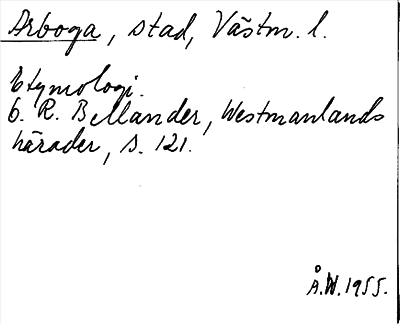 Arboga, stad, Västm. l.
Etymologi.
E. R. Bellander, Westmanlands
härader, s. 121.
Å.W. 1955.